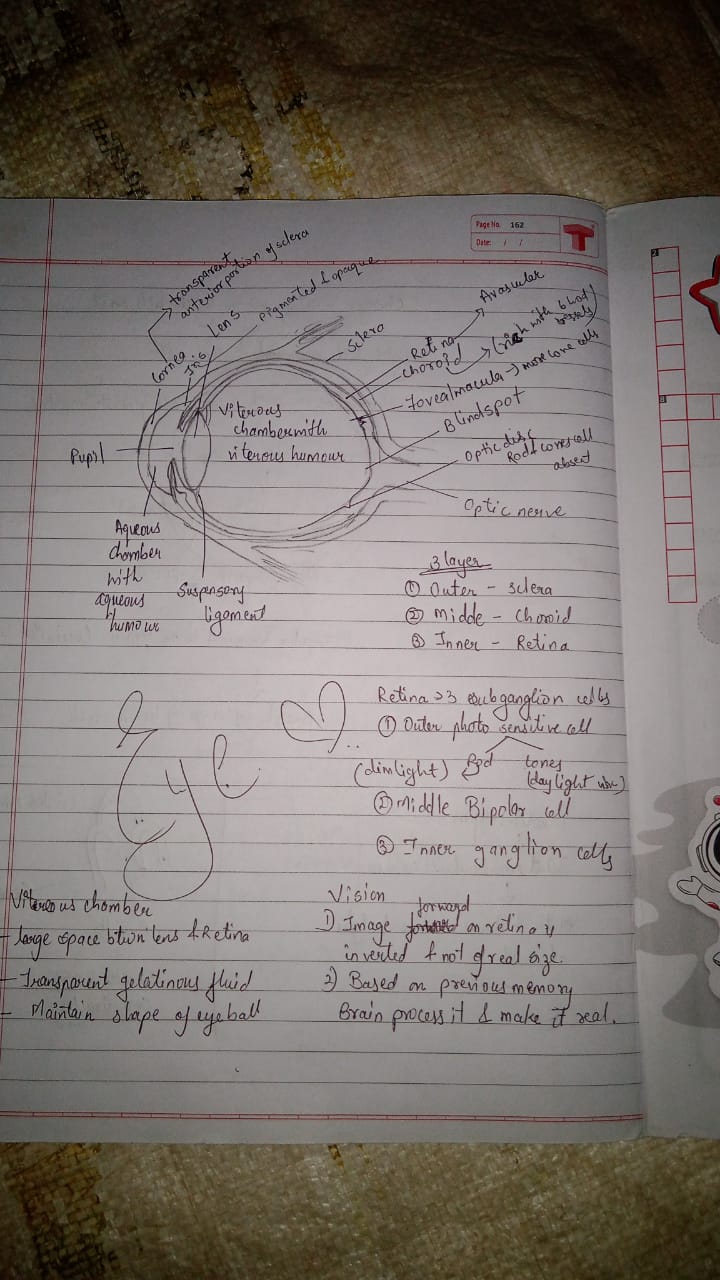 Page No. 162
Date: / /
T
transparent
anterior portion of sclera
Lens
pigmented & opaque
Cornea
Iris
Sclera
Retina
Avascular
choroid
(rich with blood
vessels)
Fovea/macula → more cone cells
Blindspot
Optic disc
Rod & cones cell
absent
Optic nerve
Viterous
chamber with
viterous humour
Pupil
Aqueous
chamber
with
aqueous
humour
Suspensory
ligament
3 layer
① Outer - sclera
② Midde - Choroid
③ Inner - Retina
Eye
Retina → 3 subganglion cells
① Outer photo sensitive cell
(dimlight) Rod
cones
(daylight
② Middle Bipolar cell
③ Inner ganglion cells
Vitereous chamber
- large space btwn lens & Retina
- Transparent gelatinous fluid
- Maintain shape of eyeball
Vision
forward
1) Image on retina is
inverted & not of real size.
2) Based on previous memory
Brain process it & make it real.